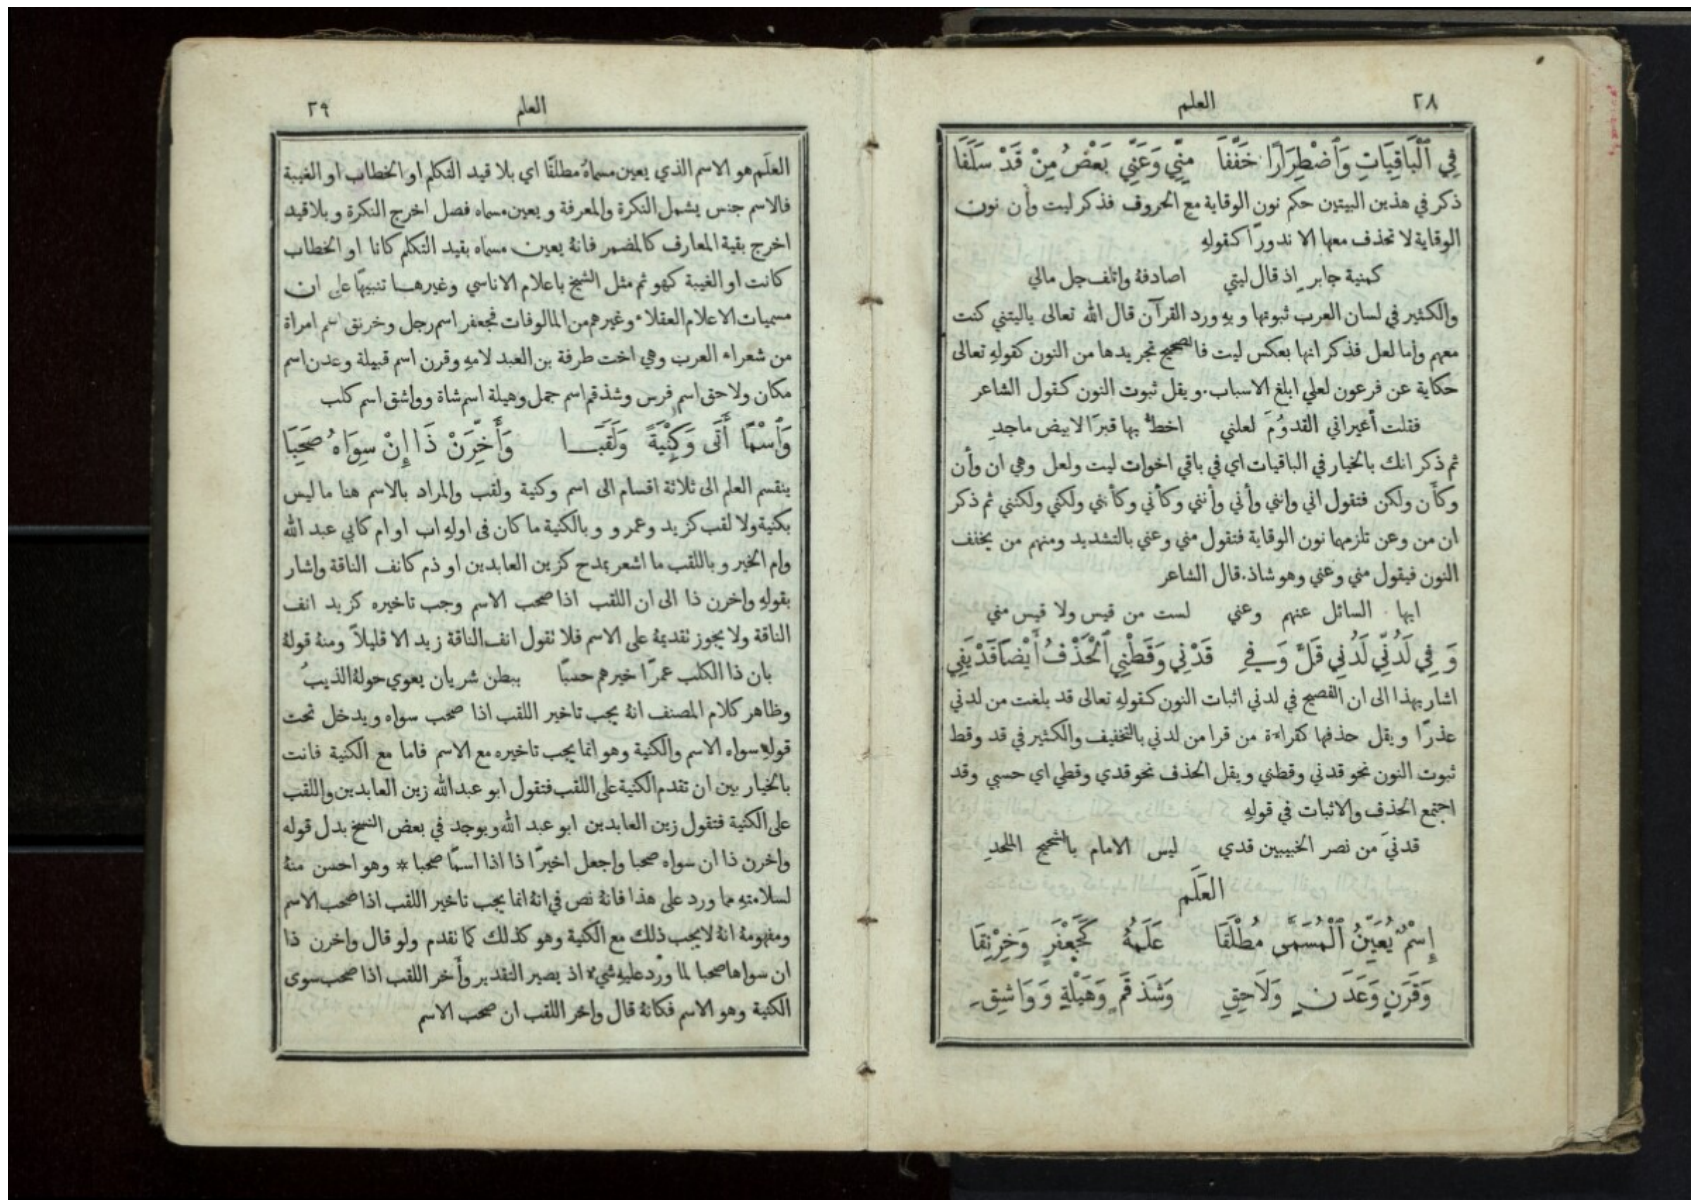 ٢٨ العلم
فِي ٱلْبَاقِيَاتِ وَٱضْطِرَارًا خَفَّفَا مِنِّي وَعَنِّي بَعْضُ مِنْ قَدْ سَلَفَا
ذكر في هذين البيتين حكم نون الوقاية مع الحروف فذكر ليت وأن نون
الوقاية لا تحذف معها الا ندورًا كقولهِ
كمنية جابرٍ اذ قال ليتي اصادفهُ واتلف جل مالي
والكثير في لسان العرب ثبوتها وبهِ ورد القرآن قال الله تعالى ياليتني كنت
معهم وأما لعل فذكر انها بعكس ليت فالصحيح تجريدها من النون كقولهِ تعالى
حكاية عن فرعون لعلي ابلغ الاسباب. ويقل ثبوت النون كقول الشاعر
فقلت أعيراني القدوُمَ لعلني اخطُّ بها قبرًا لابيض ماجدِ
ثم ذكر انك بالخيار في الباقيات اي في باقي اخوات ليت ولعل وهي ان وأن
وكأن ولكن فتقول اني وانني وأني وأنني وكأني وكأنني ولكني ولكنني ثم ذكر
ان من وعن تلزمهما نون الوقاية فتقول مني وعني بالتشديد ومنهم من يخفف
النون فيقول مني وعني وهو شاذ. قال الشاعر
ايها السائل عنهم وعني لست من قيس ولا قيس مني
وَ فِي لَدُنِّي لَدُنِي قَلَّ وَ فِي قَدْنِي وَقَطْنِي ٱلْحَذْفُ أَيْضًا قَدْ يَفِي
اشار بهذا الى ان الفصيح في لدني اثبات النون كقولهِ تعالى قد بلغت من لدني
عذرًا ويقل حذفها كقراءة من قرا من لدني بالتخفيف والكثير في قد وقط
ثبوت النون نحو قدني وقطني ويقل الحذف نحو قدي وقطي اي حسبي وقد
اجتمع الحذف والاثبات في قولهِ
قدنيَ من نصر الخبيبين قدي ليس الامام بالشحيح الملحدِ
العَلَم
إِسْمٌ يُعَيِّنُ ٱلْمُسَمَّى مُطْلَقَا عَلَمُهُ كَجَعْفَرٍ وَخِرْنِقَا
وَقَرَنٍ وَعَدَنٍ وَلَاحِقِ وَشَذْقَمٍ وَهَيْلَةٍ وَوَاشِقِ
العلم ٢٩
العلَم هو الاسم الذي يعين مسماهُ مطلقًا اي بلا قيد التكلم او الخطاب او الغيبة
فالاسم جنس يشمل النكرة والمعرفة ويعين مسماه فصل اخرج النكرة وبلا قيد
اخرج بقية المعارف كالمضمر فانهُ يعين مسماه بقيد التكلم كانا او الخطاب
كانت او الغيبة كهو ثم مثل الشيخ باعلام الاناسي وغيرها تنبيهًا على ان
مسميات الاعلام العقلاء وغيرهم من المالوفات فجعفر اسم رجل وخرنق اسم امراة
من شعراء العرب وهي اخت طرفة بن العبد لامهِ وقرن اسم قبيلة وعدن اسم
مكان ولاحق اسم فرس وشذقم اسم جمل وهيلة اسم شاة وواشق اسم كلب
وَٱسْمًا أَتَى وَكُنْيَةً وَلَقَبَا وَأَخِّرَنْ ذَا إِنْ سِوَاهُ صَحِبَا
ينقسم العلم الى ثلاثة اقسام الى اسم وكنية ولقب والمراد بالاسم هنا ما ليس
بكنية ولا لقب كزيد وعمرو وبالكنية ما كان في اولهِ اب او ام كابي عبد الله
وام الخير وباللقب ما اشعر بمدح كزين العابدين او ذم كانف الناقة واشار
بقولهِ واخرن ذا الى ان اللقب اذا صحب الاسم وجب تاخيره كزيد انف
الناقة ولا يجوز تقديمهُ على الاسم فلا تقول انف الناقة زيد الا قليلاً ومنهُ قولهُ
بان ذا الكلب عمرًا خيرهم حسبًا ببطن شريان يعوي حولهُ الذيبُ
وظاهر كلام المصنف انهُ يجب تاخير اللقب اذا صحب سواه ويدخل تحت
قولهِ سواه الاسم والكنية وهو انما يجب تاخيره مع الاسم فاما مع الكنية فانت
بالخيار بين ان تقدم الكنية على اللقب فتقول ابو عبد الله زين العابدين واللقب
على الكنية فتقول زين العابدين ابو عبد الله ويوجد في بعض النسخ بدل قوله
واخرن ذا ان سواه صحبا واجعل اخيرًا ذا اذا اسمًا صحبا * وهو احسن منهُ
لسلامتهِ مما ورد على هذا فانهُ نص في انهُ انما يجب تاخير اللقب اذا صحب الاسم
ومفهومهُ انهُ لا يجب ذلك مع الكنية وهو كذلك كما تقدم ولو قال واخرن ذا
ان سواها صحبا لما ورد عليهِ شيء اذ يصير التقدير وأخر اللقب اذا صحب سوى
الكنية وهو الاسم فكانهُ قال واخر اللقب ان صحب الاسم